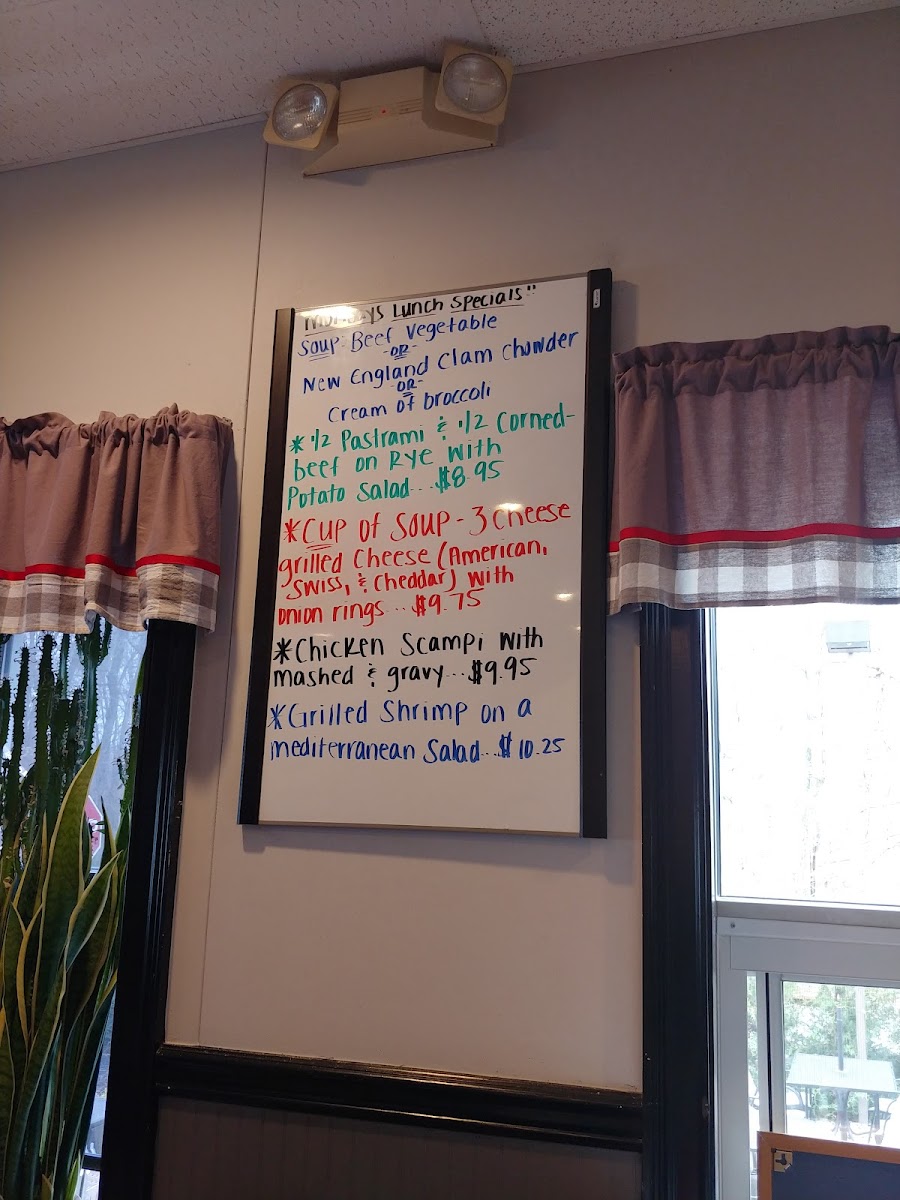 Lunch Specials"
Soup-Beef Vegetable
-OR-
New England Clam Chowder
-OR-
Cream of broccoli
* 1/2 Pastrami & 1/2 Corned-
beef on Rye with
Potato Salad...$8.95
*Cup of Soup - 3 Cheese
grilled Cheese (American,
Swiss, & Cheddar) with
onion rings...$9.75
*Chicken Scampi with
mashed & gravy...$9.95
*Grilled Shrimp on a
mediterranean Salad...$10.25